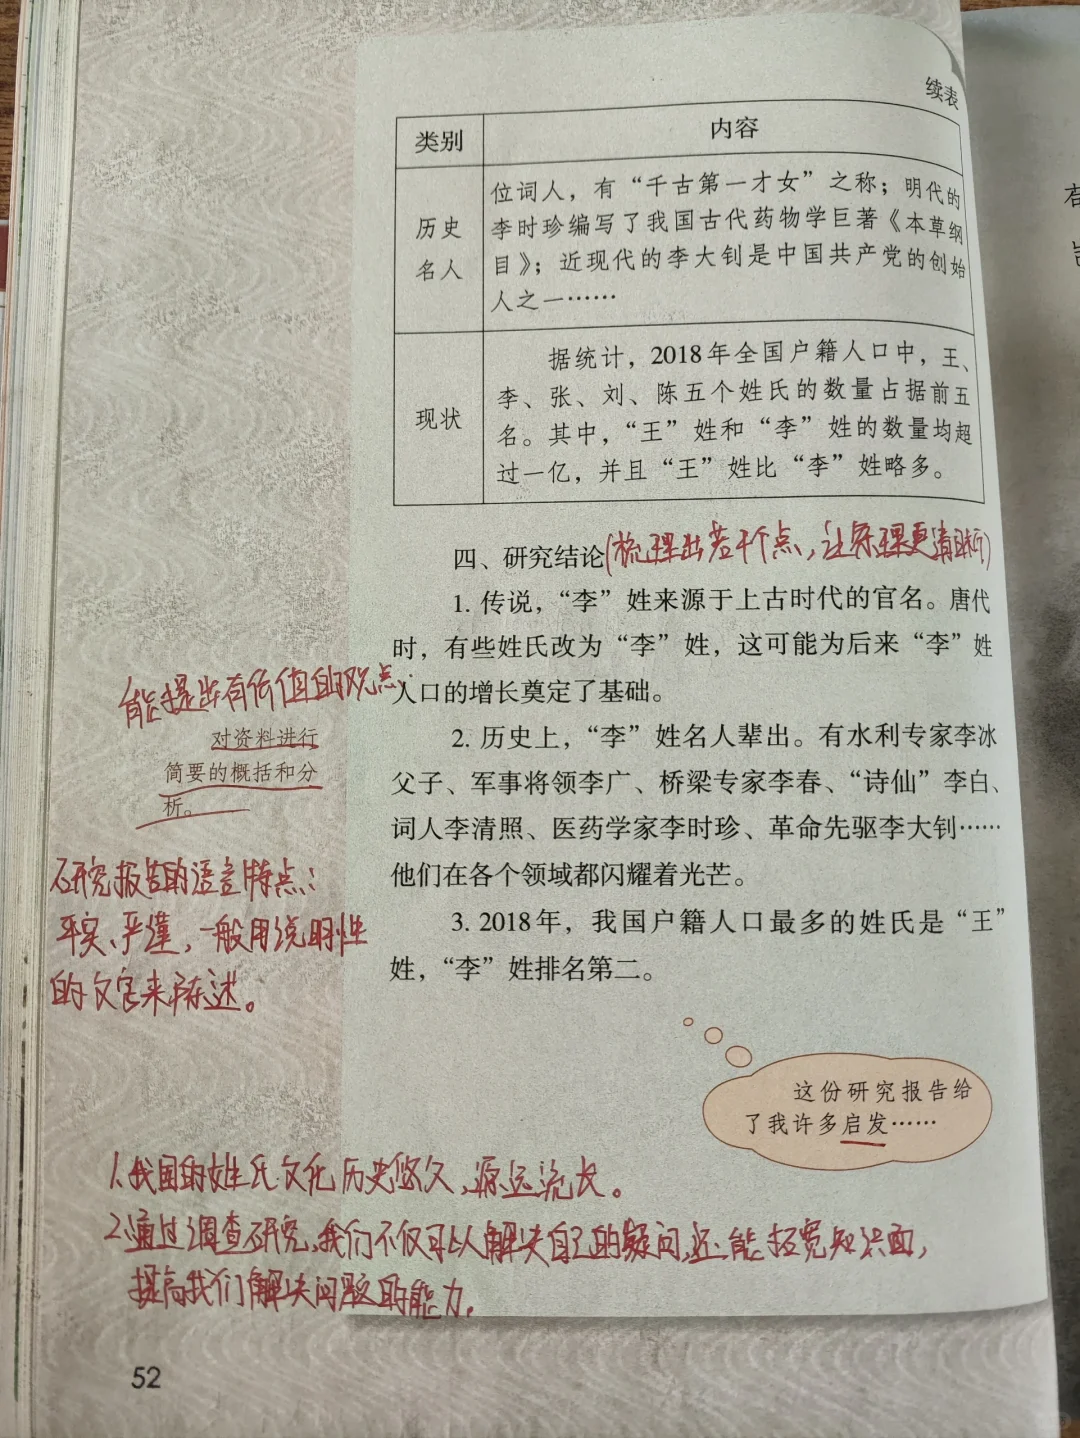 续表
类别 内容
位词人，有“千古第一才女”之称；明代的
历史 李时珍编写了我国古代药物学巨著《本草纲
名人 目》；近现代的李大钊是中国共产党的创始
人之一……
据统计，2018年全国户籍人口中，王、
李、张、刘、陈五个姓氏的数量占据前五
现状 名。其中，“王”姓和“李”姓的数量均超
过一亿，并且“王”姓比“李”姓略多。
四、研究结论(梳理出若干个点，让条理更清晰)
1. 传说，“李”姓来源于上古时代的官名。唐代
时，有些姓氏改为“李”姓，这可能为后来“李”姓
人口的增长奠定了基础。
能提出有价值的观点。
对资料进行
简要的概括和分
析。
2. 历史上，“李”姓名人辈出。有水利专家李冰
父子、军事将领李广、桥梁专家李春、“诗仙”李白、
词人李清照、医药学家李时珍、革命先驱李大钊……
他们在各个领域都闪耀着光芒。
研究报告的语言特点：
平实、严谨，一般用说明性
的文字来陈述。
3. 2018年，我国户籍人口最多的姓氏是“王”
姓，“李”姓排名第二。
这份研究报告给
了我许多启发……
1.我国的姓氏文化历史悠久，源远流长。
2.通过调查研究，我们不仅可以解决自己的疑问，还能拓宽知识面，
提高我们解决问题的能力。
52
有